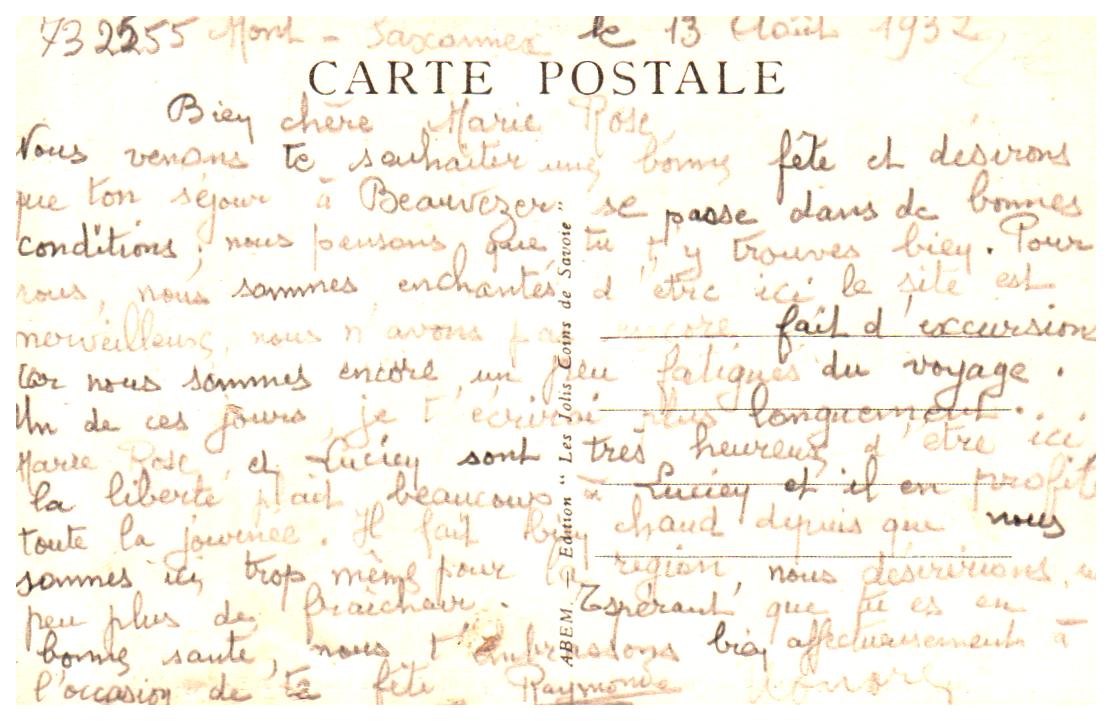 732555 Mont-Saxonnex le 13 Août 1932
CARTE POSTALE
Bien chère Marie Rose,
Nous venons te souhaiter une bonne fête et désirons
que ton séjour à Beauvezer se passe dans de bonnes
conditions ; nous pensons que tu t'y trouves bien. Pour
nous, nous sommes enchantés d'être ici le site est
merveilleux, nous n'avons pas encore fait d'excursions
car nous sommes encore un peu fatigués du voyage.
Un de ces jours, je t'écrirai plus longuement.
Marie Rose et Lucien sont très heureux d'être ici,
la liberté plait beaucoup à Lucien et il en profite
toute la journée. Il fait bien chaud depuis que nous
sommes ici, trop même pour la région, nous désirerions un
peu plus de fraîcheur. Espérant que tu es en
bonne santé, nous t'embrassons bien affectueusement à
l'occasion de ta fête Raymonde Honoré
ABEM. — Edition " Les Jolis Coins de Savoie "